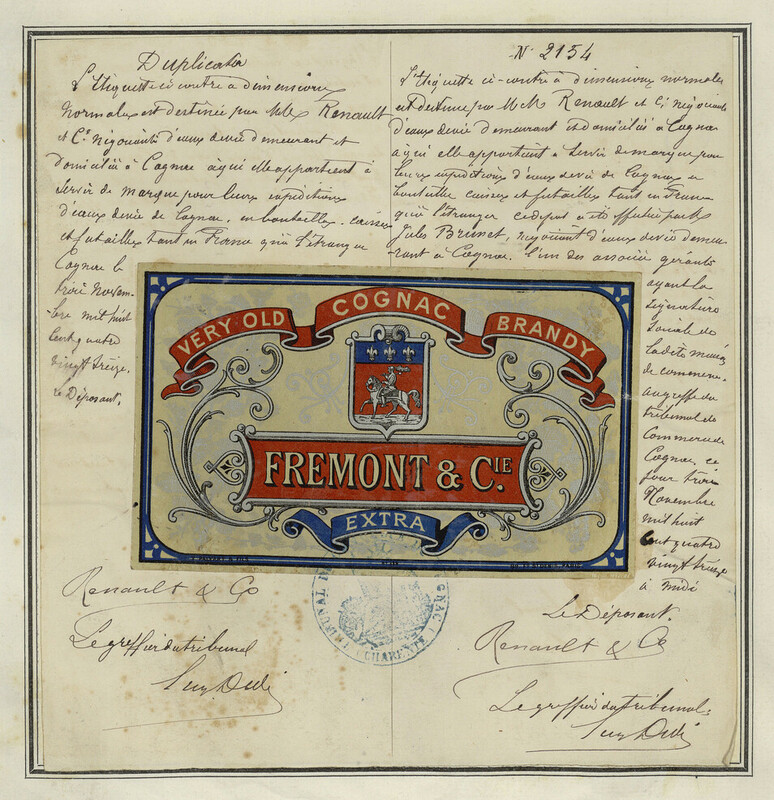 Duplicata
L'étiquette ci contre a dimensions
normales est destinée par MM Renault
et Cie négociants d'eaux de vie demeurant et
domiciliés à Cognac à qui elle appartient à
servir de marque pour leurs expéditions
d'eaux de vie de Cognac, en bouteilles, caisses
et futailles tant en France qu'à l'étranger
Cognac le
trois Novem-
bre mil huit
cent quatre
vingt treize.
Le Déposant.
Renault & Co
Le greffier du tribunal
No 2154
L'étiquette ci-contre à dimensions normales
est destinée par MM Renault et Cie négociants
d'eaux de vie demeurant et domiciliés à Cognac
à qui elle appartient à servir de marque pour
leurs expéditions d'eaux de vie de Cognac en
bouteilles caisses et futailles tant en France
qu'à l'étranger ce dépôt a été effectué par M
Jules Brunet, négociant d'eaux de vie demeu-
rant à Cognac. l'un des associés gérants
ayant la
signature
sociale de
la dite maison
de commerce
au greffe du
tribunal de
Commerce de
Cognac, ce
jour trois
Novembre
mil huit
cent quatre
vingt treize
à midi
Le Déposant.
Renault & Co
Le greffier du tribunal
VERY OLD COGNAC BRANDY
FREMONT & CIE.
EXTRA
TRIBUNAL COGNAC
CHARENTE